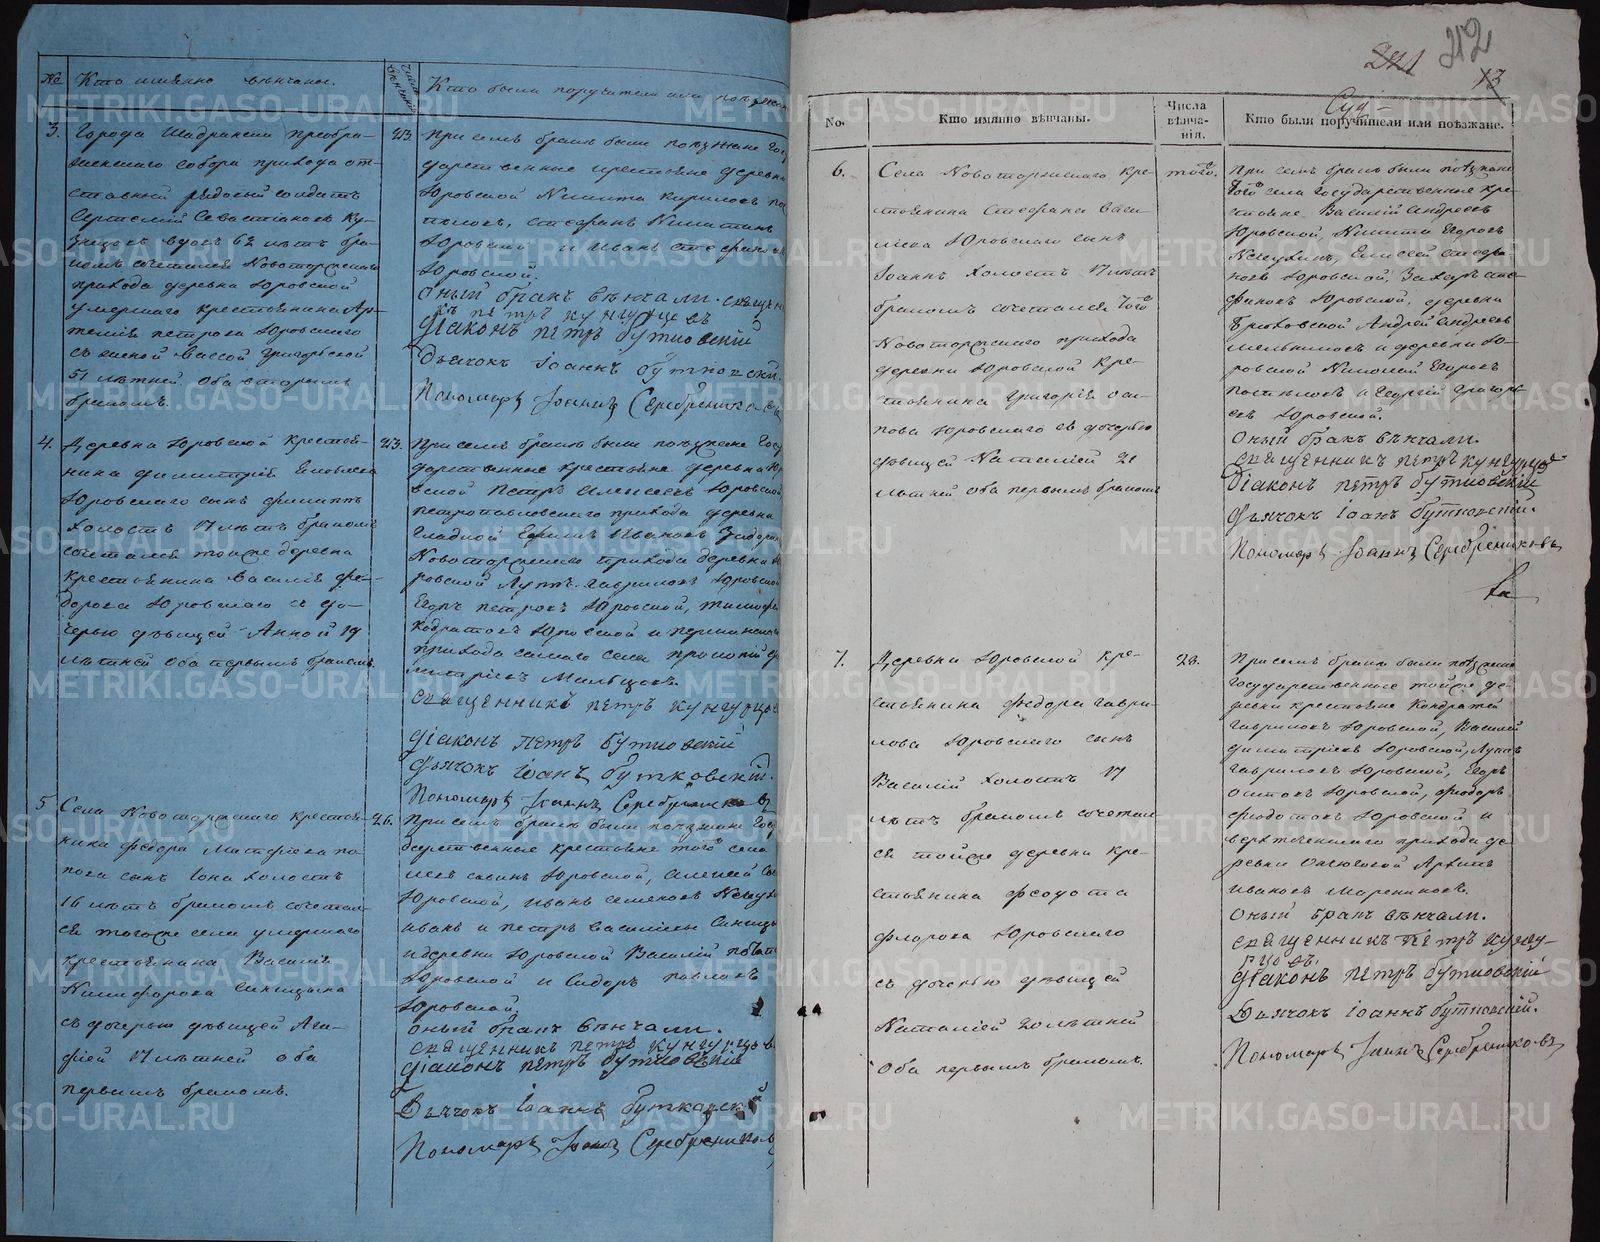 №
Кто имянно вѣнчаны.
Числа вѣнчанія
Кто были поручители или поѣзжане
3.
Города Шадринска преобра-
женскаго собора прихода от-
ставный рядовой солдатъ
Севастіановъ Ку-
вдовъ 62 лѣтъ бра-
комъ сочетался Новоторжскаго
прихода деревни Юровской
умершаго крестьянина Ар-
темія петрова Юровскаго
съ женой Вассой григорьевой
51 лѣтней оба вторымъ
бракомъ.
23.
При семъ бракѣ были поѣзжане Госу
дарственные крестьяне деревни
Юровской Никита Кириловъ по
стефанъ Никитинъ
Юровской и Иванъ стефановъ
Юровской.
Оный бракъ вѣнчали. священ
къ петръ кунгурцевъ
діаконъ петръ бутковскій
дьячокъ іоаннъ бутковскій.
Пономарь Іоаннъ Серебрениковъ
4.
Деревни Юровской крестья-
нина димитрія Яковлева
Юровскаго сынъ филиппъ
холостъ 17 лѣтъ бракомъ
сочетался тойже деревни
крестьянина Василія фе-
дорова Юровскаго съ до-
черью дѣвицей Анной 19
лѣтней оба первымъ бракомъ.
23.
При семъ бракѣ были поѣзжане Госу
дарственные крестьяне деревни Ю
вской Петръ Алексеевъ Юровской
петропавловскаго прихода деревни
Гладкой Ефимъ Ивановъ
Новоторжскаго прихода деревни Ю
ровской Лупъ гавриловъ Юровской
Егоръ петровъ Юровской, тимофей
Кодратовъ Юровской и
прихода самаго села прокопій ди
митріевъ Мальцовъ.
священникъ петръ кунгурцов
діаконъ петръ бутковскій
дьячокъ іоаннъ бутковскій.
Пономарь Іоаннъ Серебрениковъ
5
Села Новоторжскаго крестья-
нина федора Матфіева по-
пова сынъ Іона холостъ
16 лѣтъ бракомъ сочетал-
ся тогоже села умершаго
крестьянина Василія
Никифорова Синицына
съ дочерью дѣвицей Ага-
фіей 17 лѣтней оба
первымъ бракомъ.
26.
При семъ бракѣ были поѣзжане Госу
дарственные крестьяне того села
савинъ Юровской, Алексей
Юровской, Иванъ семеновъ
Иванъ и петръ Василіевы Синицы
и деревни Юровской Василій
Юровской и Сидоръ павловъ
Юровской.
Оный бракъ вѣнчали.
священникъ петръ кунгурцев
діаконъ петръ бутковскій
Дьячокъ іоаннъ бутковскій
Пономарь Іоаннъ Серебрениковъ
221
212
13
No.
Кто имянно вѣнчаны.
Числа вѣнча- нія.
Суд-
Кто были поручители или поѣзжане.
6.
Села Новоторжскаго кре-
стьянина стефана васи-
лієва Юровскаго сынъ
Іоаннъ холостъ 17 лѣтъ
бракомъ сочетался того
Новоторжскаго прихода
деревни Юровской кре-
стьянина григорія оси-
пова Юровскаго съ дочерью
дѣвицей Наталіей 21
лѣтней оба первымъ бракомъ
того.
При семъ бракѣ были поѣзжане
того села государственные кре-
стьяне Василій андреевъ
Юровской, Никита Егоровъ
Елисей стефа
новъ Юровской, Захаръ сте
фановъ Юровской, деревни
Андрей андреевъ
мельниковъ и деревни Ю-
ровской Николай Егоровъ
и георгій григорь-
евъ Юровской.
Оный бракъ вѣнчали.
священникъ петръ кунгурцовъ
діаконъ петръ бутковскій
дьячокъ іоаннъ бутковскій.
Пономарь Іоаннъ Серебрениковъ
7.
Деревни Юровской кре-
стьянина федора гаври-
лова Юровскаго сынъ
Василій холостъ 17
лѣтъ бракомъ сочетал
ся тойже деревни кре-
стьянина федота
флорова Юровскаго
съ дочерью дѣвицей
Наталіей 20 лѣтней
Оба первымъ бракомъ.
23.
При семъ бракѣ были поѣзжане
государственные тойже де-
ревни крестьяне Кондратей
гавриловъ Юровской, Василій
димитріевъ Юровской, Лупъ
гавриловъ Юровской, Егоръ
осиповъ Юровской, федоръ
федотовъ Юровской и
прихода де-
ревни
Ивановъ
Оный бракъ вѣнчали.
священникъ петръ кунгу-
рцовъ.
діаконъ петръ бутковскій
Дьячокъ іоаннъ бутковскій.
Пономарь Іоаннъ Серебрениковъ
METRIKI.GASO-URAL.RU